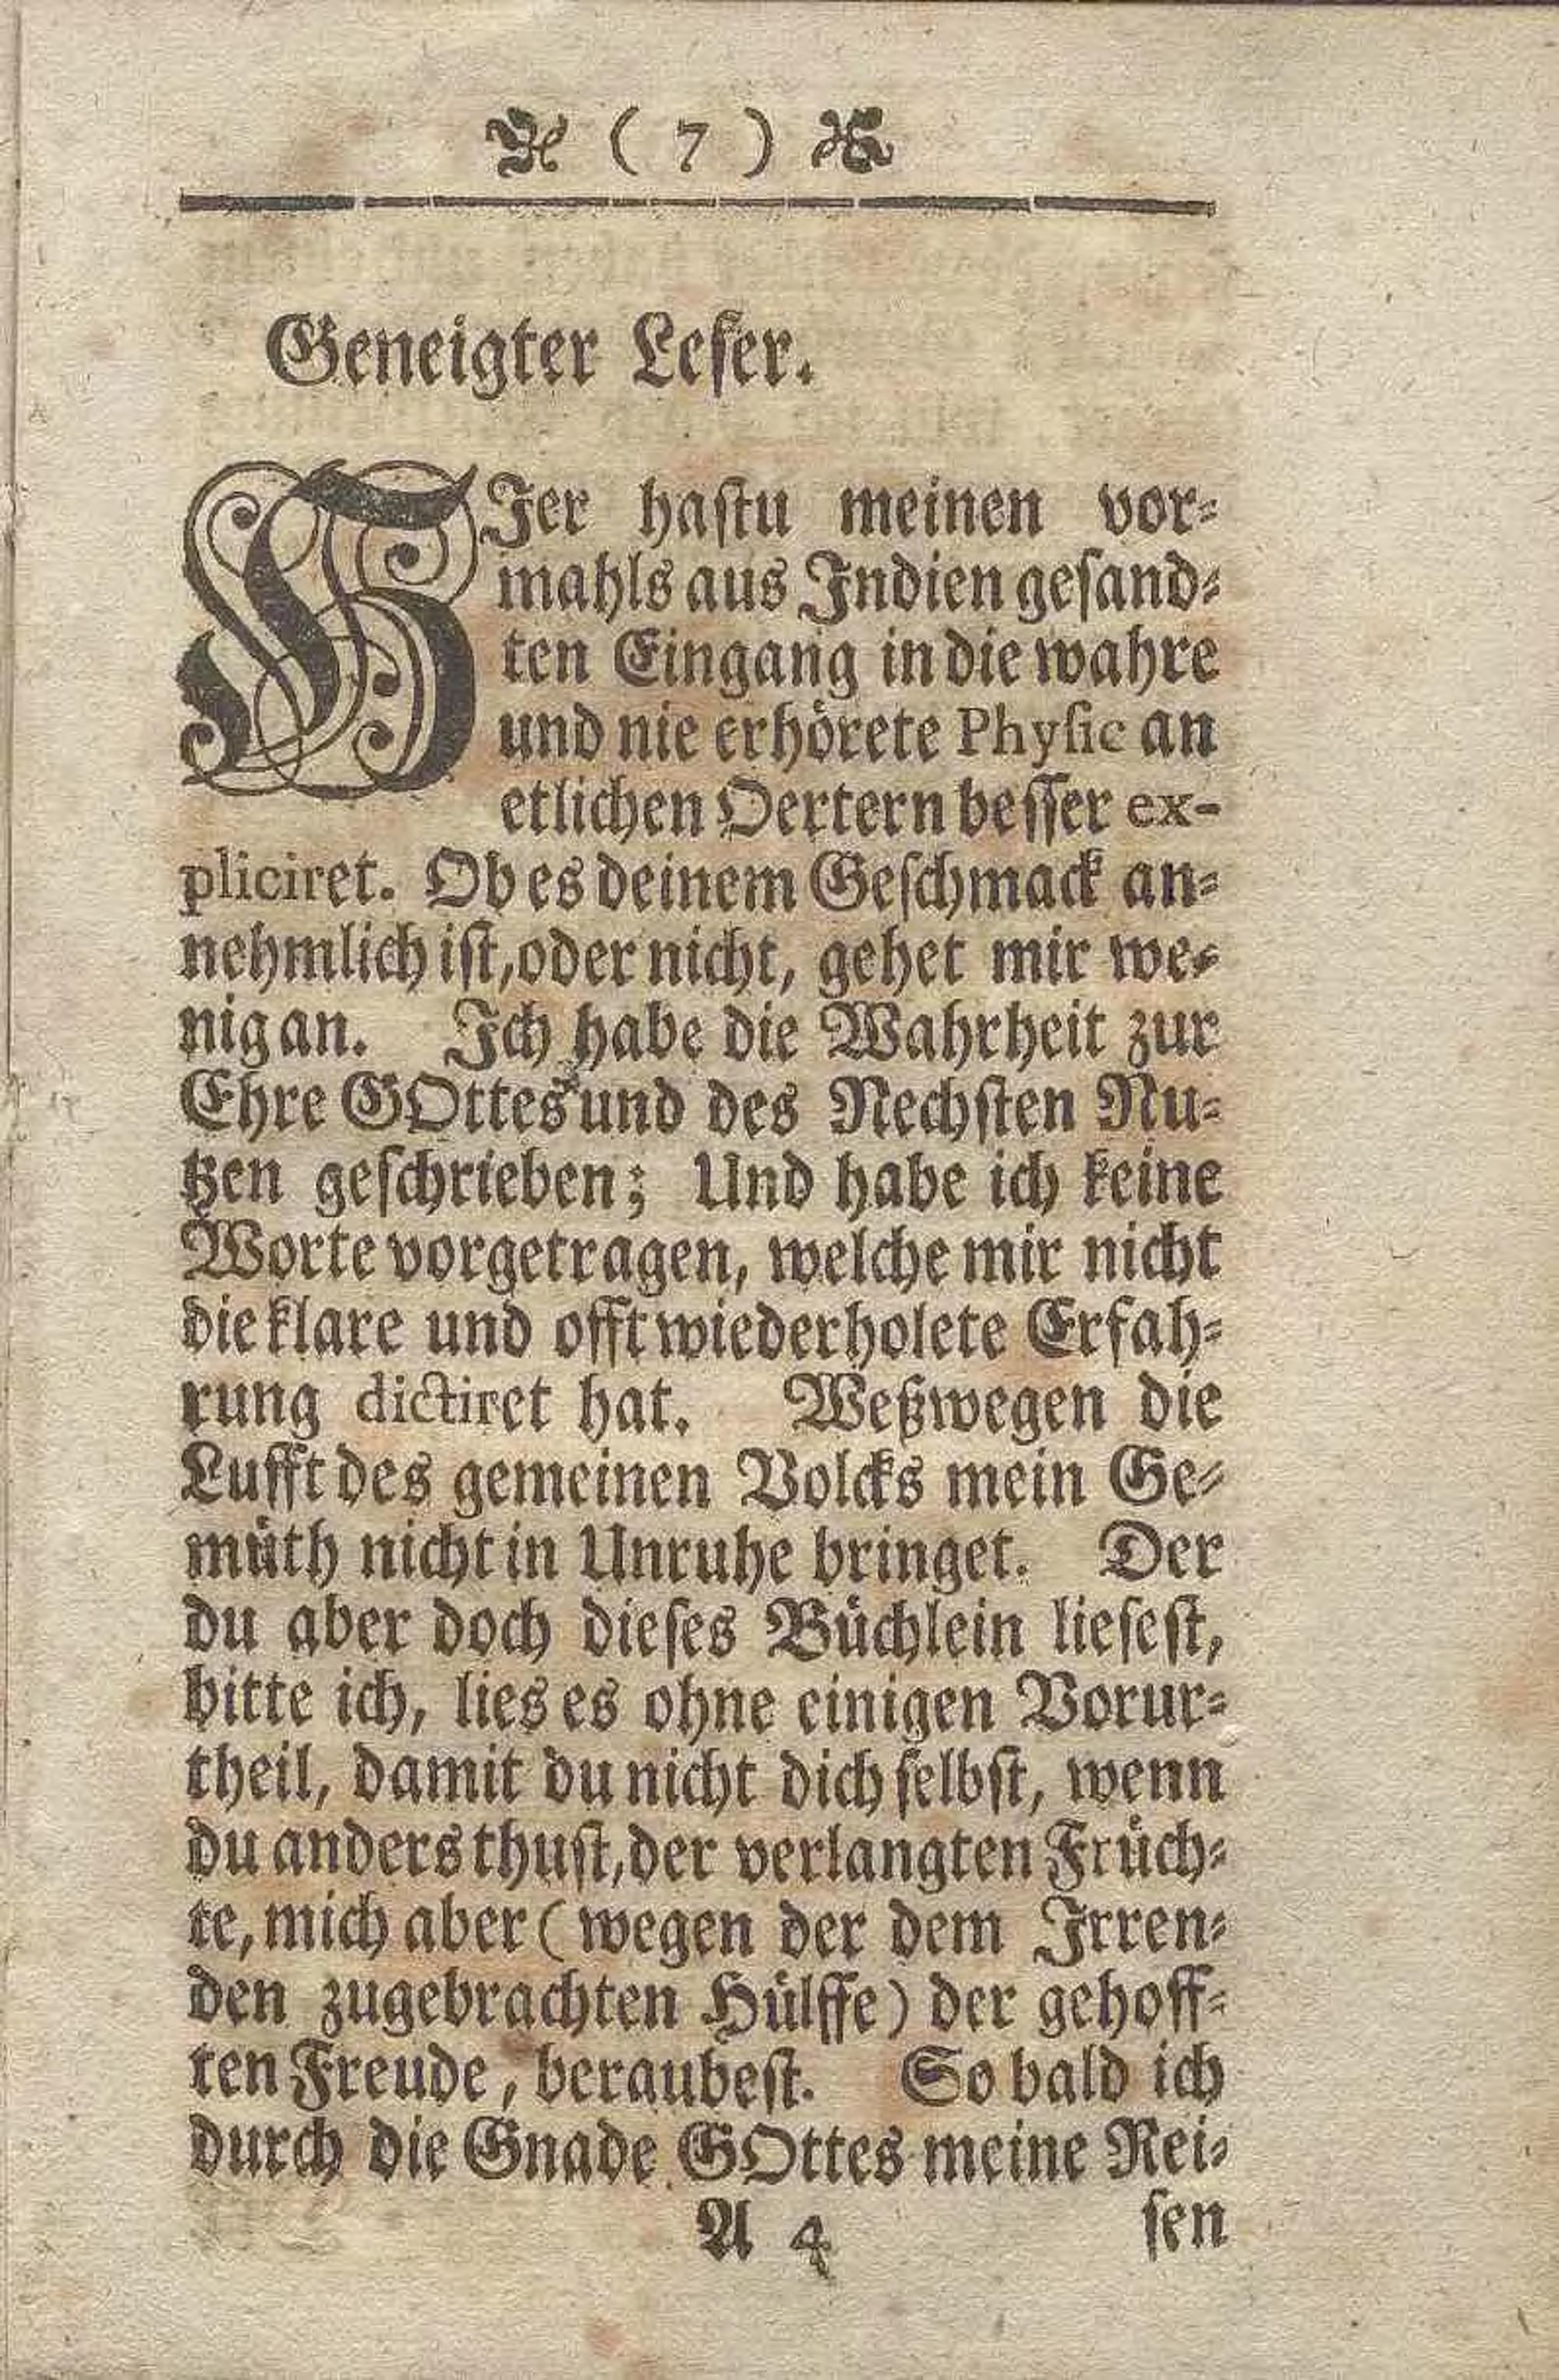 ( 7 )
Geneigter Leſer.
HIer haſtu meinen vor⸗
mahls aus Indien geſand⸗
ten Eingang in die wahre
und nie erhörete Phyſic an
etlichen Oertern beſſer ex-
pliciret. Ob es deinem Geſchmack an⸗
nehmlich iſt, oder nicht, gehet mir we⸗
nig an. Ich habe die Wahrheit zur
Ehre GOttes und des Nechſten Nu⸗
tzen geſchrieben; Und habe ich keine
Worte vorgetragen, welche mir nicht
die klare und offt wiederholete Erfah⸗
rung dictiret hat. Weßwegen die
Lufft des gemeinen Volcks mein Ge⸗
müth nicht in Unruhe bringet. Der
du aber doch dieſes Büchlein lieſeſt,
bitte ich, lies es ohne einigen Vorur⸗
theil, damit du nicht dich ſelbſt, wenn
du anders thuſt, der verlangten Früch⸗
te, mich aber (wegen der dem Irren⸗
den zugebrachten Hülffe) der gehoff⸗
ten Freude, beraubeſt. So bald ich
durch die Gnade GOttes meine Rei⸗
A 4 ſen